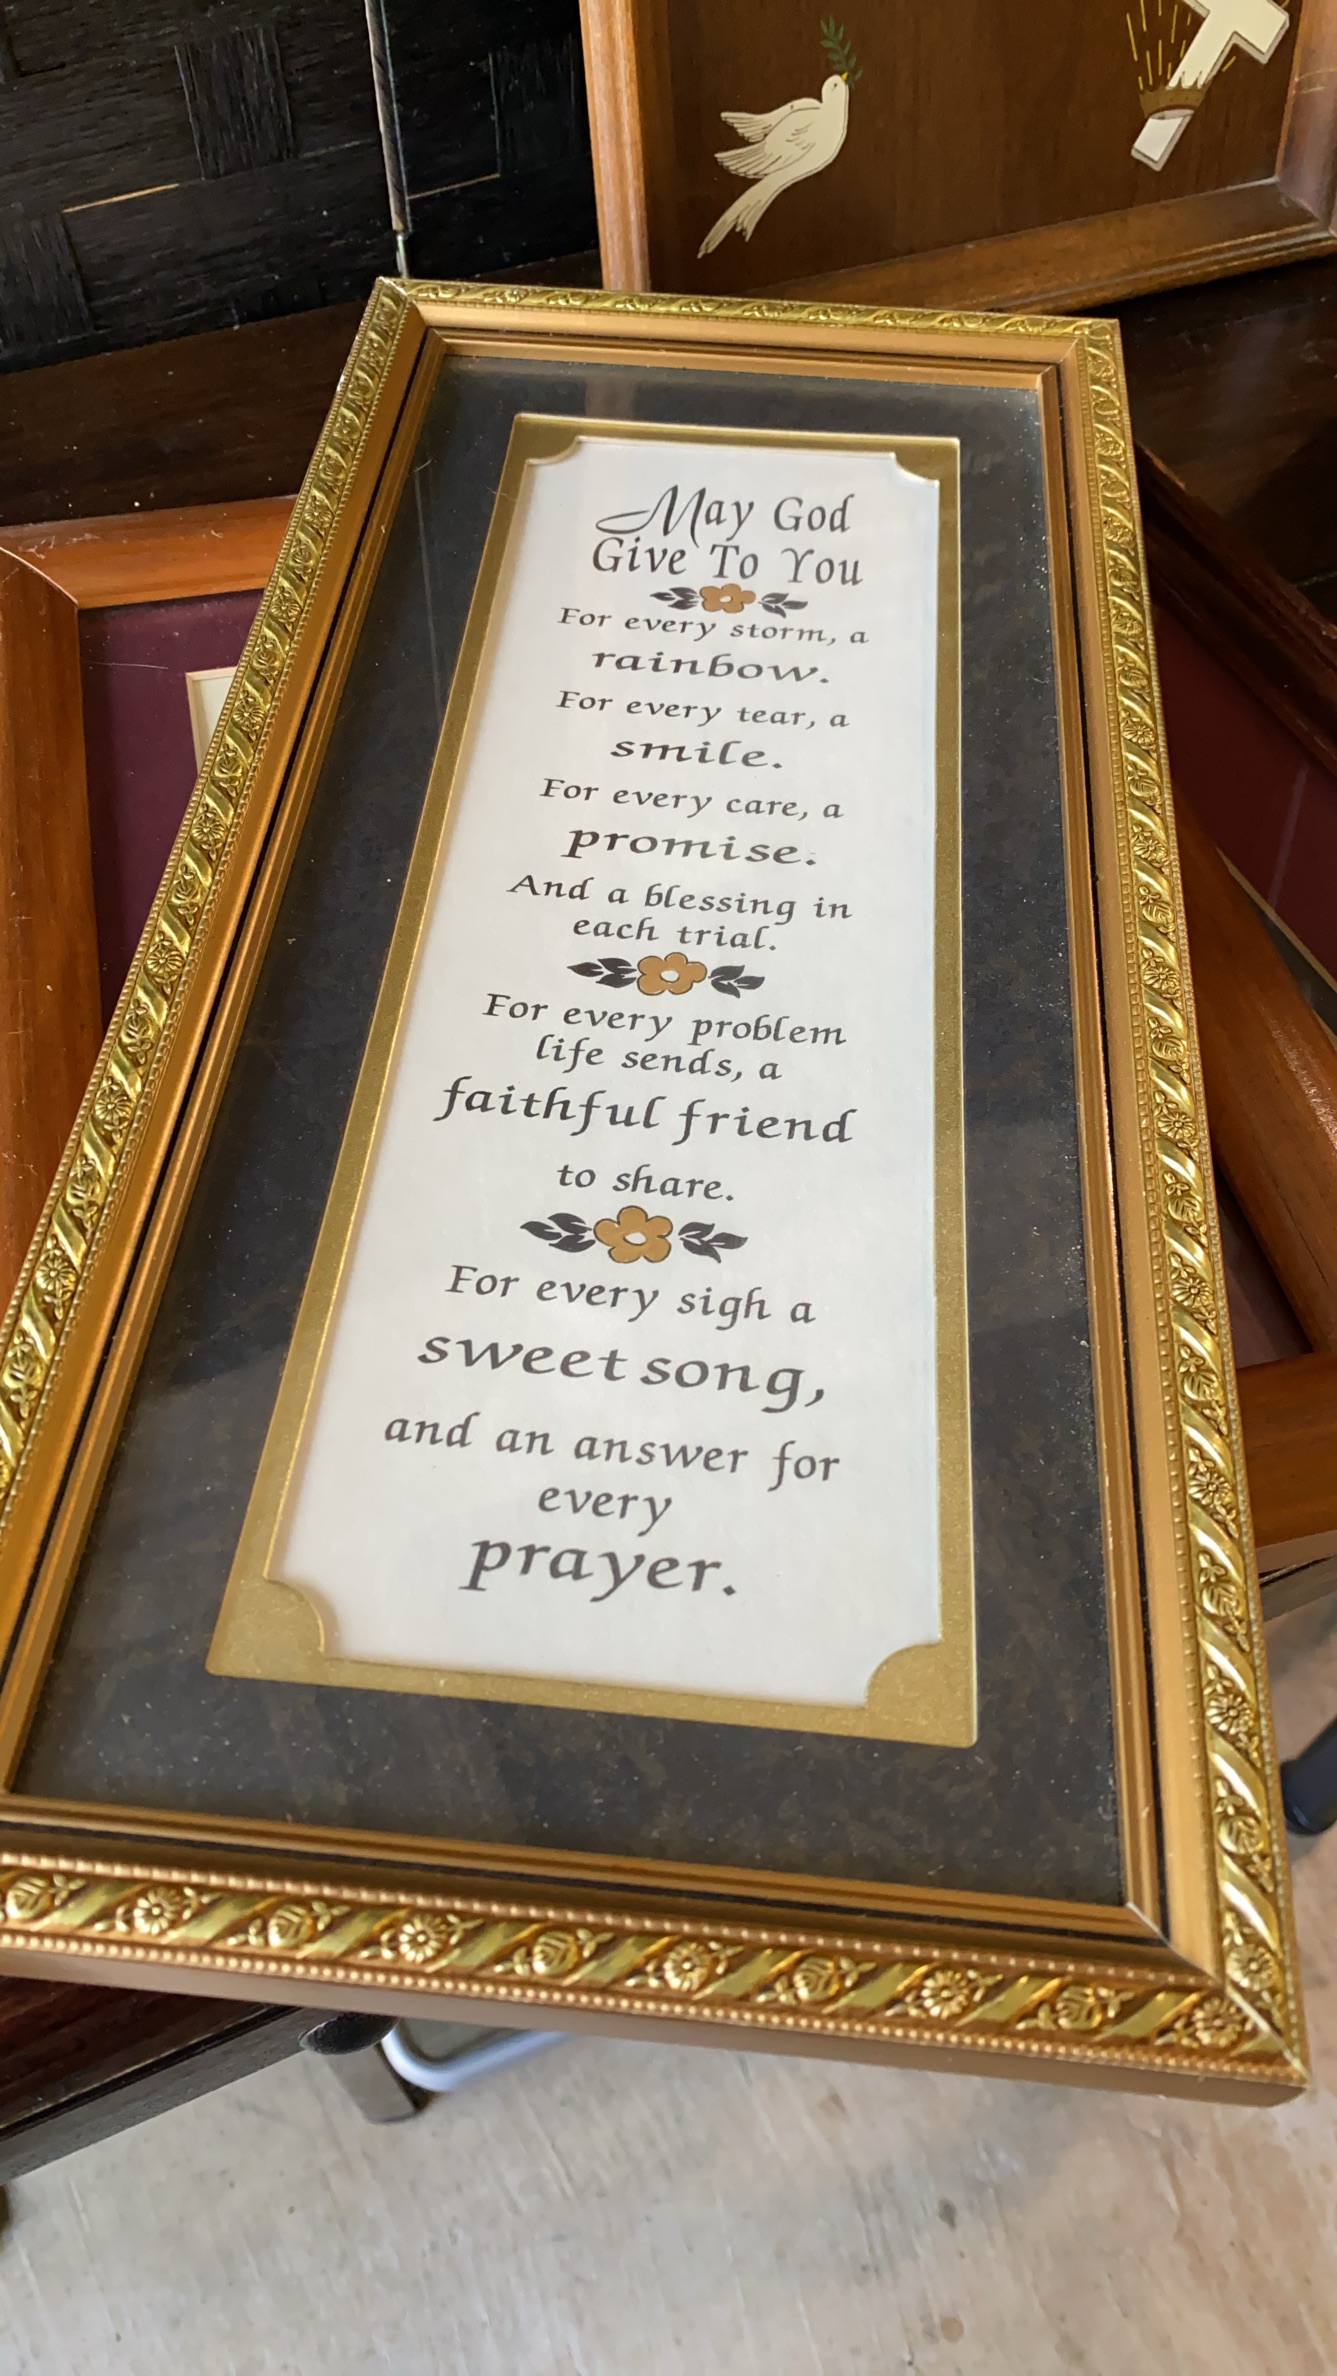 May God
Give To You
For every storm, a
rainbow.
For every tear, a
smile.
For every care, a
promise.
And a blessing in
each trial.
For every problem
life sends, a
faithful friend
to share.
For every sigh a
sweet song,
and an answer for
every
prayer.